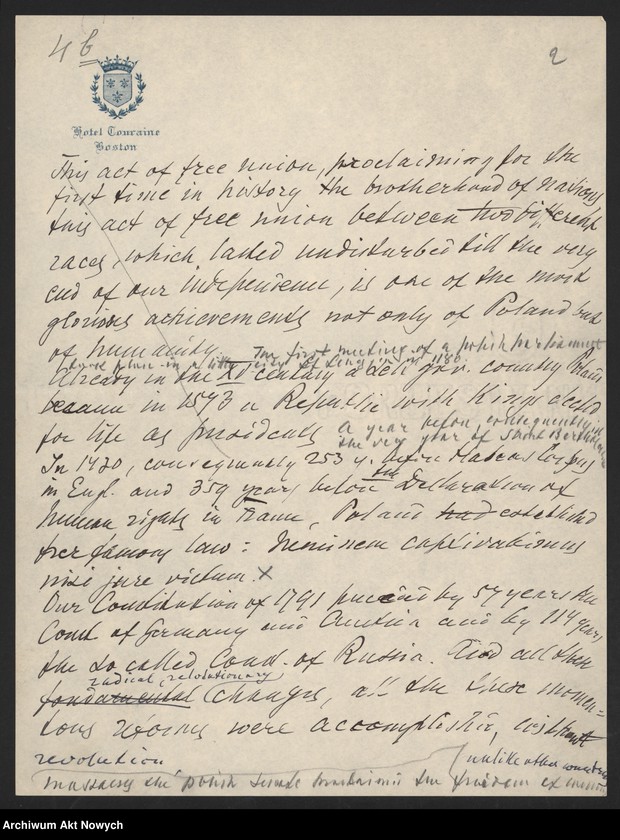 4 b
2
Hotel Touraine
Boston
This act of free union, proclaiming for the
first time in history the brotherhood of nations
this act of free union between two different
races, which lasted undisturbed till the very
end of our independence, is one of the most
glorious achievements not only of Poland but
of humanity. The first meeting of a polish parliament
took place in a little city of in 1180.
Already in the XV century a self gov. country Poland
became in 1573 a Republic with Kings elected
for life as presidents a year before, consequently in
the very year of Saint Bartholomew
In 1430, consequently 253 y. before Habeas Corpus
in Engl. and 359 years before the Declaration of
human rights in France, Poland had established
her famous law: Neminem captivabimus
nisi jure victum. X
Our Constitution of 1791 preced by 57 years the
Const of Germany and Austria and by 114 years
the so called Const. of Russia. And all these
radical, revolutionary
fondamental changes, all the these momen=
tous reforms were accomplished, without
revolution unlike other countries
massacres the polish the freedom of
Archiwum Akt Nowych